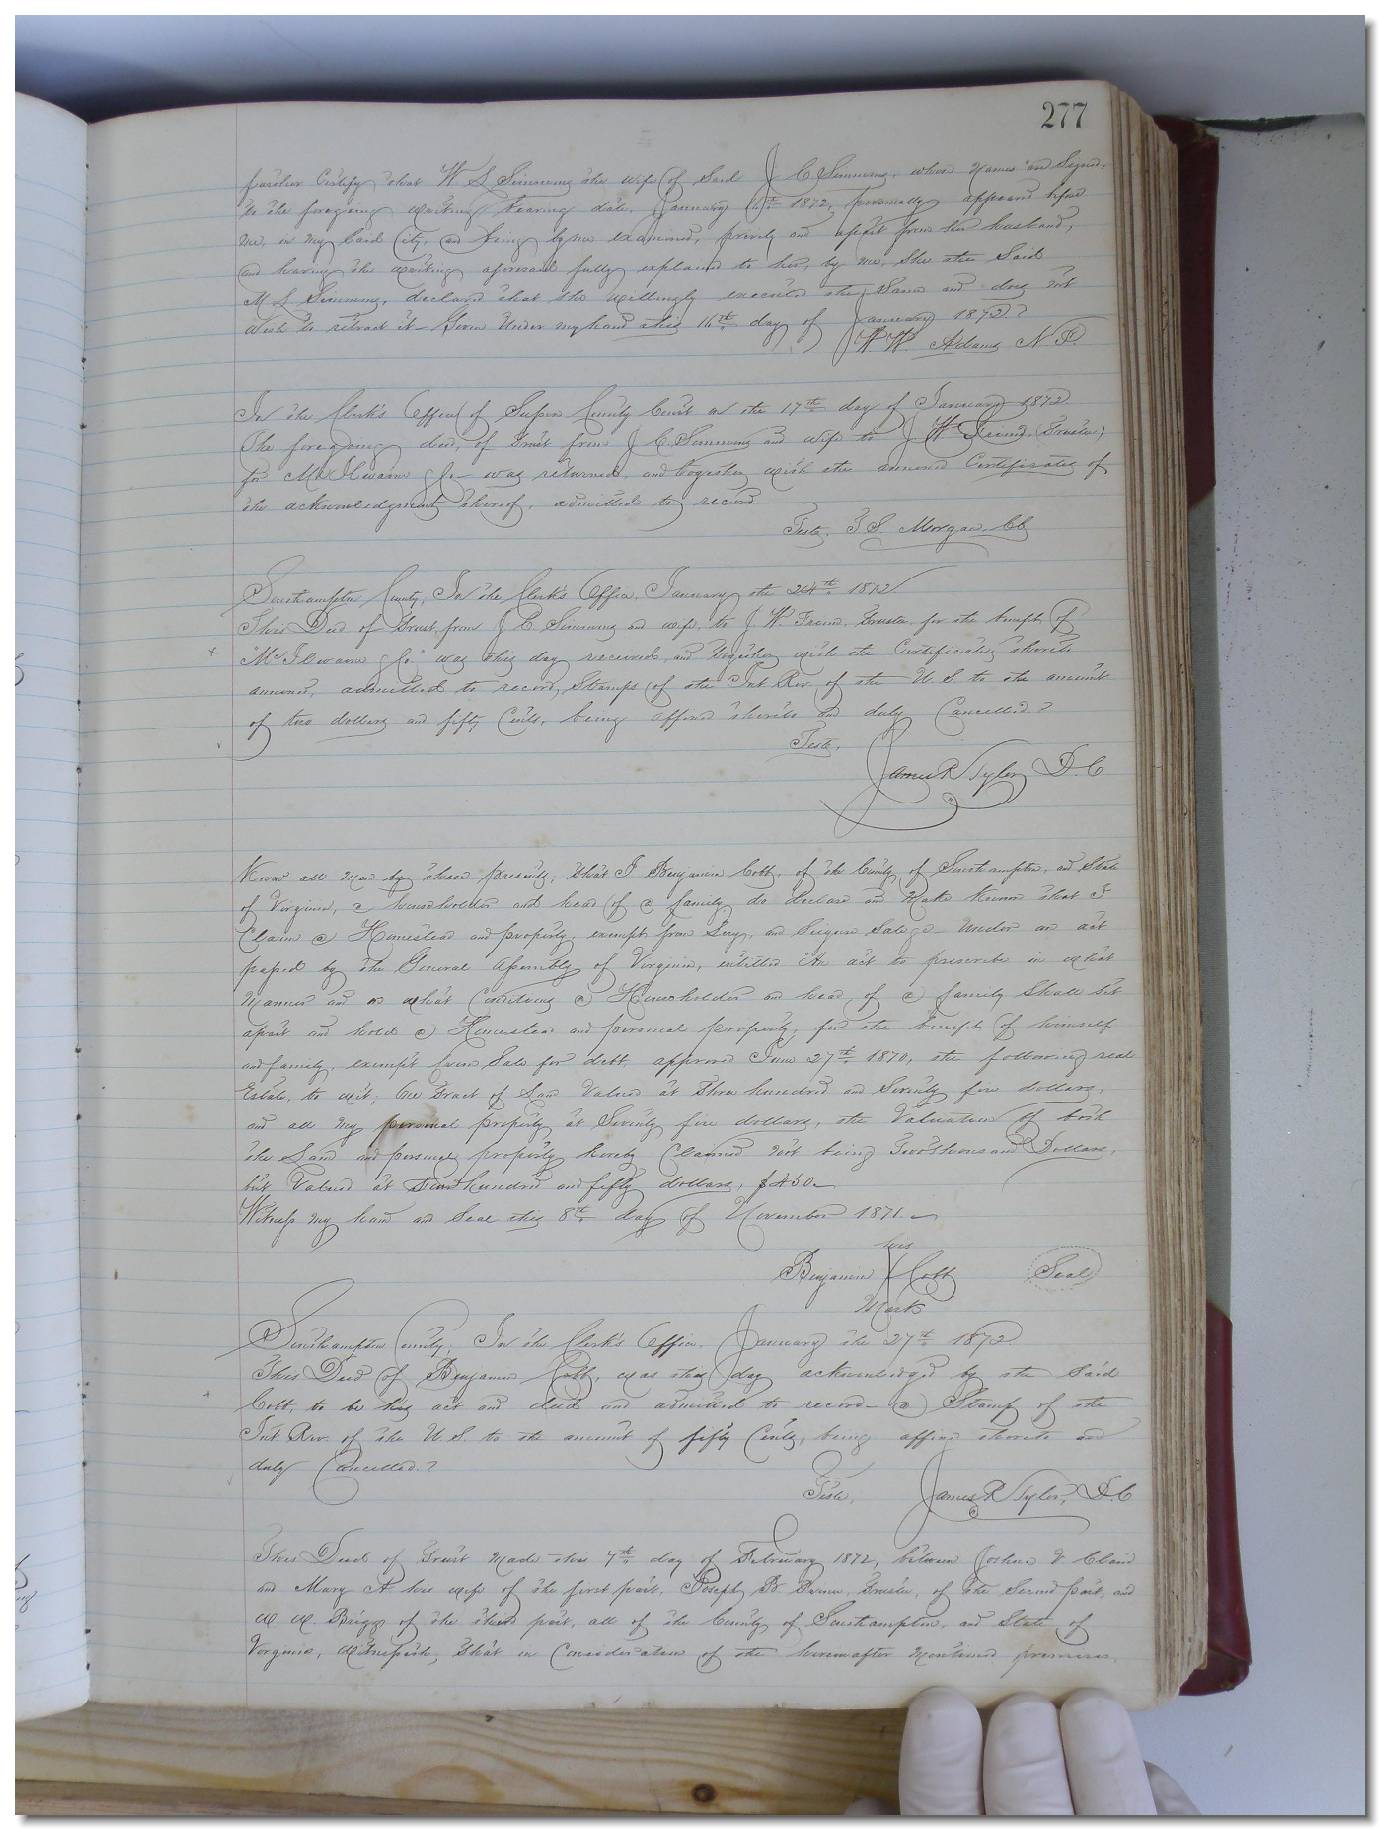 277
further Certify that W L Simmons the wife of Said J C Simmons, whose names are Signed
to the foregoing writing bearing date, January 16th 1872, personally appeared before
me, in my Said City, and being by me examined, privily and apart from her husband,
and having the writing aforesaid fully explained to her, by me, She the Said
M L Simmons, declared that She willingly executed the Same and does not
wish to retract it - Given Under my hand this 16th day of January 1872.
W W Adams N P.
In the Clerk's Office of Sussex County Court on the 17th day of January 1872
The foregoing deed, of Trust from J C Simmons and wife to J W Friend, Trustee,
for McIlwaine & Co - was returned, and together with the annexed Certificates of
the acknowledgment thereof, admitted to record
Teste, Morgan, CC
Southampton County, In the Clerk's Office, January the 24th 1872
This Deed of Trust, from J C Simmons and wife, to J W Friend, Trustee, for the benefit of
"McIlwaine & Co" was this day received, and together with the Certificates thereto
annexed, admitted to record, Stamps of the Int Rev. of the U. S. to the amount
of two dollars and fifty Cents, being affixed thereto and duly Cancelled
Teste,
James R Tyler, D. C
Know all Men by these presents, that I Benjamin Cobb, of the County of Southampton, and State
of Virginia, a householder and head of a family do declare and Make Known that I
Claim a Homestead and property, exempt from Levy, and Seizure Sale &c - Under an act
passed by the General Assembly of Virginia, entitled An act to prescribe in what
Manner and on what Conditions a Householder or head of a family Shall Set
apart and hold a Homestead and personal property, for the benefit of himself
and family, exempt from Sale for debt, approved June 27th 1870, the following real
Estate, to wit, One Tract of Land Valued at Three hundred and Seventy five dollars,
and all My personal property at Seventy five dollars, the Valuation of both
the Land and personal property hereby Claimed Not being Two thousand Dollars,
but Valued at Four hundred and fifty dollars, $450-
Witness My hand and Seal this 8th day of November 1871 -
his
Benjamin X Cobb Seal
Mark
Southampton County, In the Clerk's Office, January the 27th 1872
This Deed of Benjamin Cobb, was this day acknowledged by the Said
Cobb, to be his act and deed and admitted to record - a Stamp of the
Int Rev. of the U. S. to the amount of fifty Cents, being affixed thereto and
duly Cancelled.
Teste, James R Tyler, D. C
This Deed of Trust Made this 7th day of February 1872, between Joshua
and Mary A his wife of the first part, Joseph Trustee, of the Second part, and
Briggs of the third part, all of the County of Southampton, and State of
Virginia, Witnesseth, that in Consideration of the hereinafter Mentioned premises,